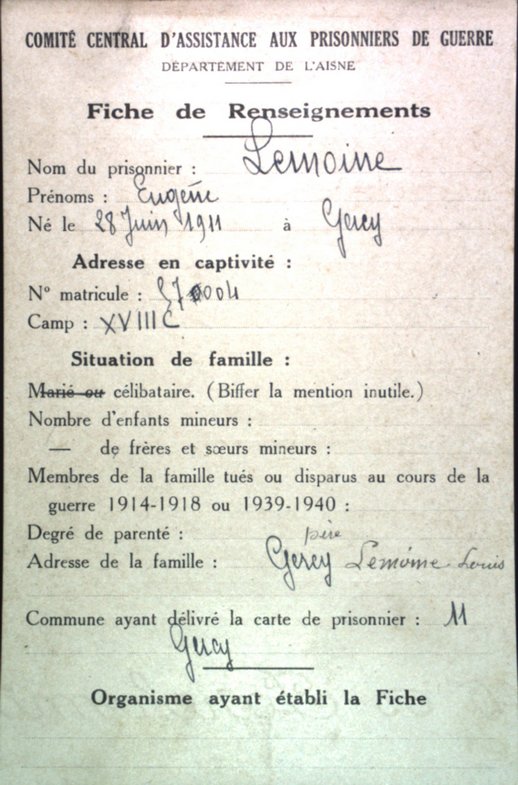 COMITÉ CENTRAL D'ASSISTANCE AUX PRISONNIERS DE GUERRE
DÉPARTEMENT DE L'AISNE
Fiche de Renseignements
Nom du prisonnier : Lemoine
Prénoms : Eugène
Né le 28 Juin 1911 à Gercy
Adresse en captivité :
N° matricule :
Camp : XVIII C
Situation de famille :
Marié ou célibataire. (Biffer la mention inutile.)
Nombre d'enfants mineurs :
— de frères et sœurs mineurs :
Membres de la famille tués ou disparus au cours de la
guerre 1914-1918 ou 1939-1940 :
Degré de parenté : père
Adresse de la famille : Gercy Lemoine Louis
Commune ayant délivré la carte de prisonnier :
Gercy
Organisme ayant établi la Fiche